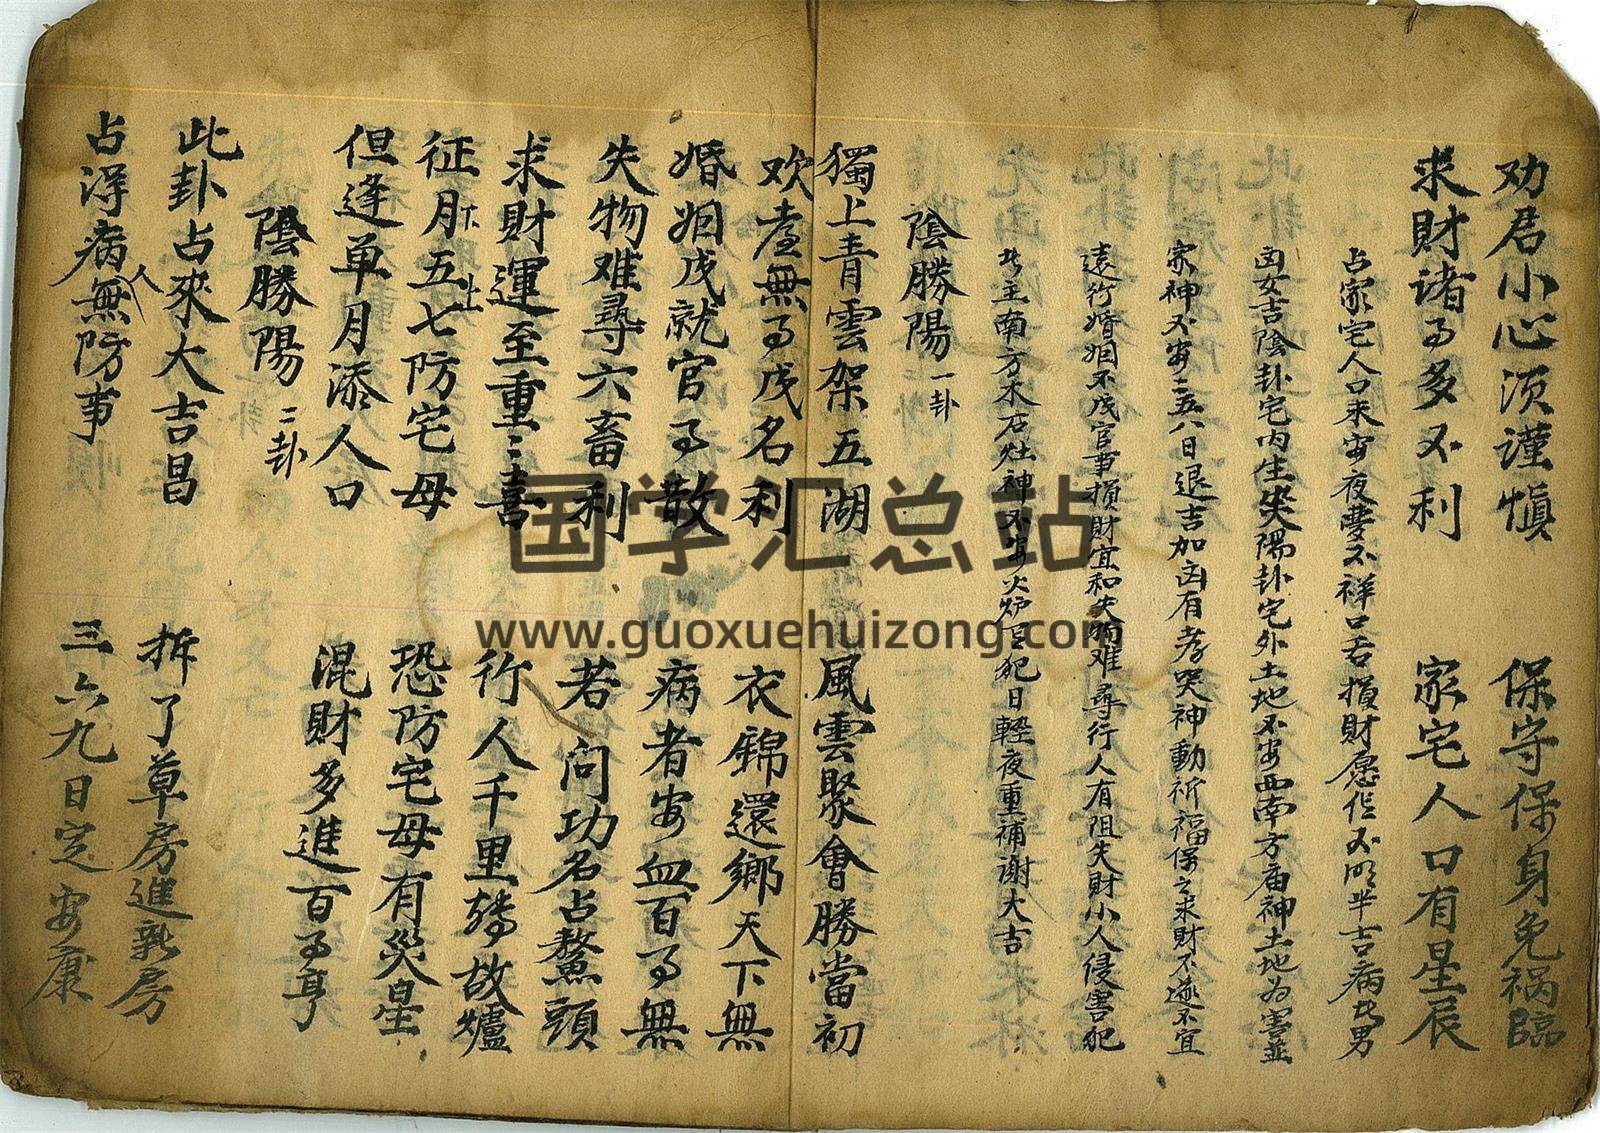 劝君小心须谨慎 保守保身免祸臨
求財诸事多不利 家宅人口有星辰
占家宅人口求安夜夢不祥口舌損財愿低不明半吉病者男
凶女吉陰卦宅内生灾陽卦宅外土地不安西南方庙神土地为害並
家神不安三五八日退吉加凶有孝哭神動祈福保之求財不遂不宜
遠行婚姻不成官事損財宜和失物难尋行人有阻失財小人侵害犯
者主南方木石灶神不安火炉 犯日輕夜重補謝大吉
陰勝陽 一卦
獨上青雲架五湖 風雲聚會勝當初
欢喜無事成名利 衣錦還鄉天下無
婚姻成就官事散 病者安血百事無
失物难尋六畜利 若問功名占鰲頭
求財運至重ミ喜 行人千里轉故爐
征月五七防宅母 恐防宅母有災星
但逢单月添人口 混財多進百事亨
陰勝陽 二卦
此卦占來大吉昌 拆了草房進新房
占浮病人無防事 三六九日定安康
国学汇总站
www.guoxuehuizong.com